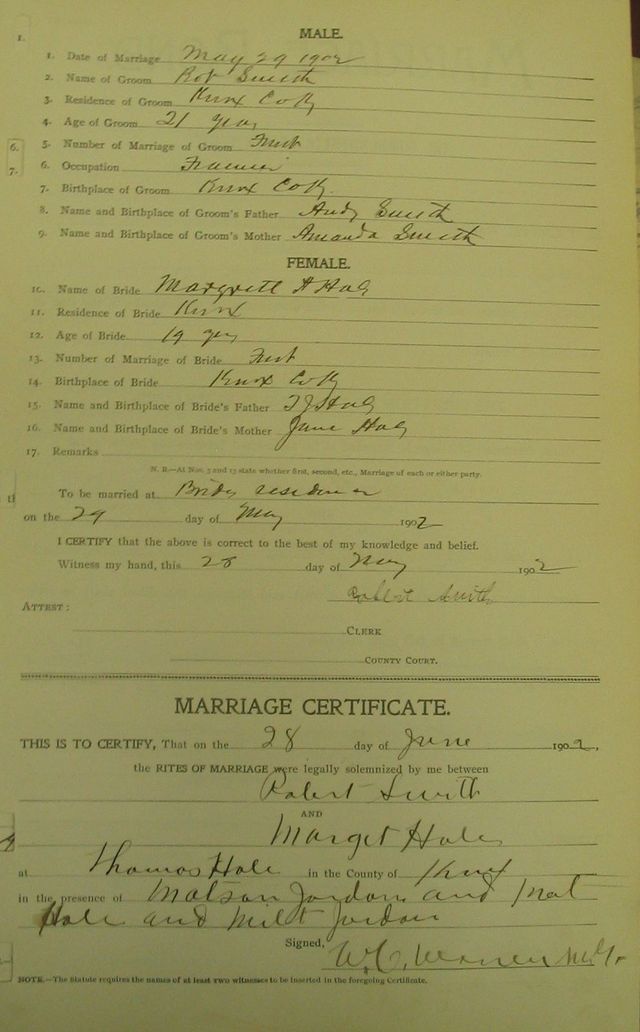 MALE.
1. Date of Marriage May 29 1902
2. Name of Groom Rob Smith
3. Residence of Groom Knox Co Ky
4. Age of Groom 21 yers
5. Number of Marriage of Groom First
6. Occupation Farmer
7. Birthplace of Groom Knox Co Ky.
8. Name and Birthplace of Groom's Father Andy Smith
9. Name and Birthplace of Groom's Mother Amanda Smith
FEMALE.
10. Name of Bride Margrett A Hale
11. Residence of Bride Knox
12. Age of Bride 19 yers
13. Number of Marriage of Bride First
14. Birthplace of Bride Knox Co Ky
15. Name and Birthplace of Bride's Father T J Hale
16. Name and Birthplace of Bride's Mother Jane Hale
17. Remarks
N. B.—At Nos. 5 and 13 state whether first, second, etc., Marriage of each or either party.
To be married at Brides residence
on the 29 day of May 1902
I CERTIFY that the above is correct to the best of my knowledge and belief.
Witness my hand, this 28 day of May 1902
Robert Smith
ATTEST:
CLERK
COUNTY COURT.
MARRIAGE CERTIFICATE.
THIS IS TO CERTIFY, That on the 28 day of June 1902,
the RITES OF MARRIAGE were legally solemnized by me between
Robert Smith
AND
Marget Hale
at Thomas Hale in the County of Knox
in the presence of Matson Jordon and
Hale and Milt Jordon
Signed, W.C. Warren
NOTE.—The Statute requires the names of at least two witnesses to be inserted in the foregoing Certificate.